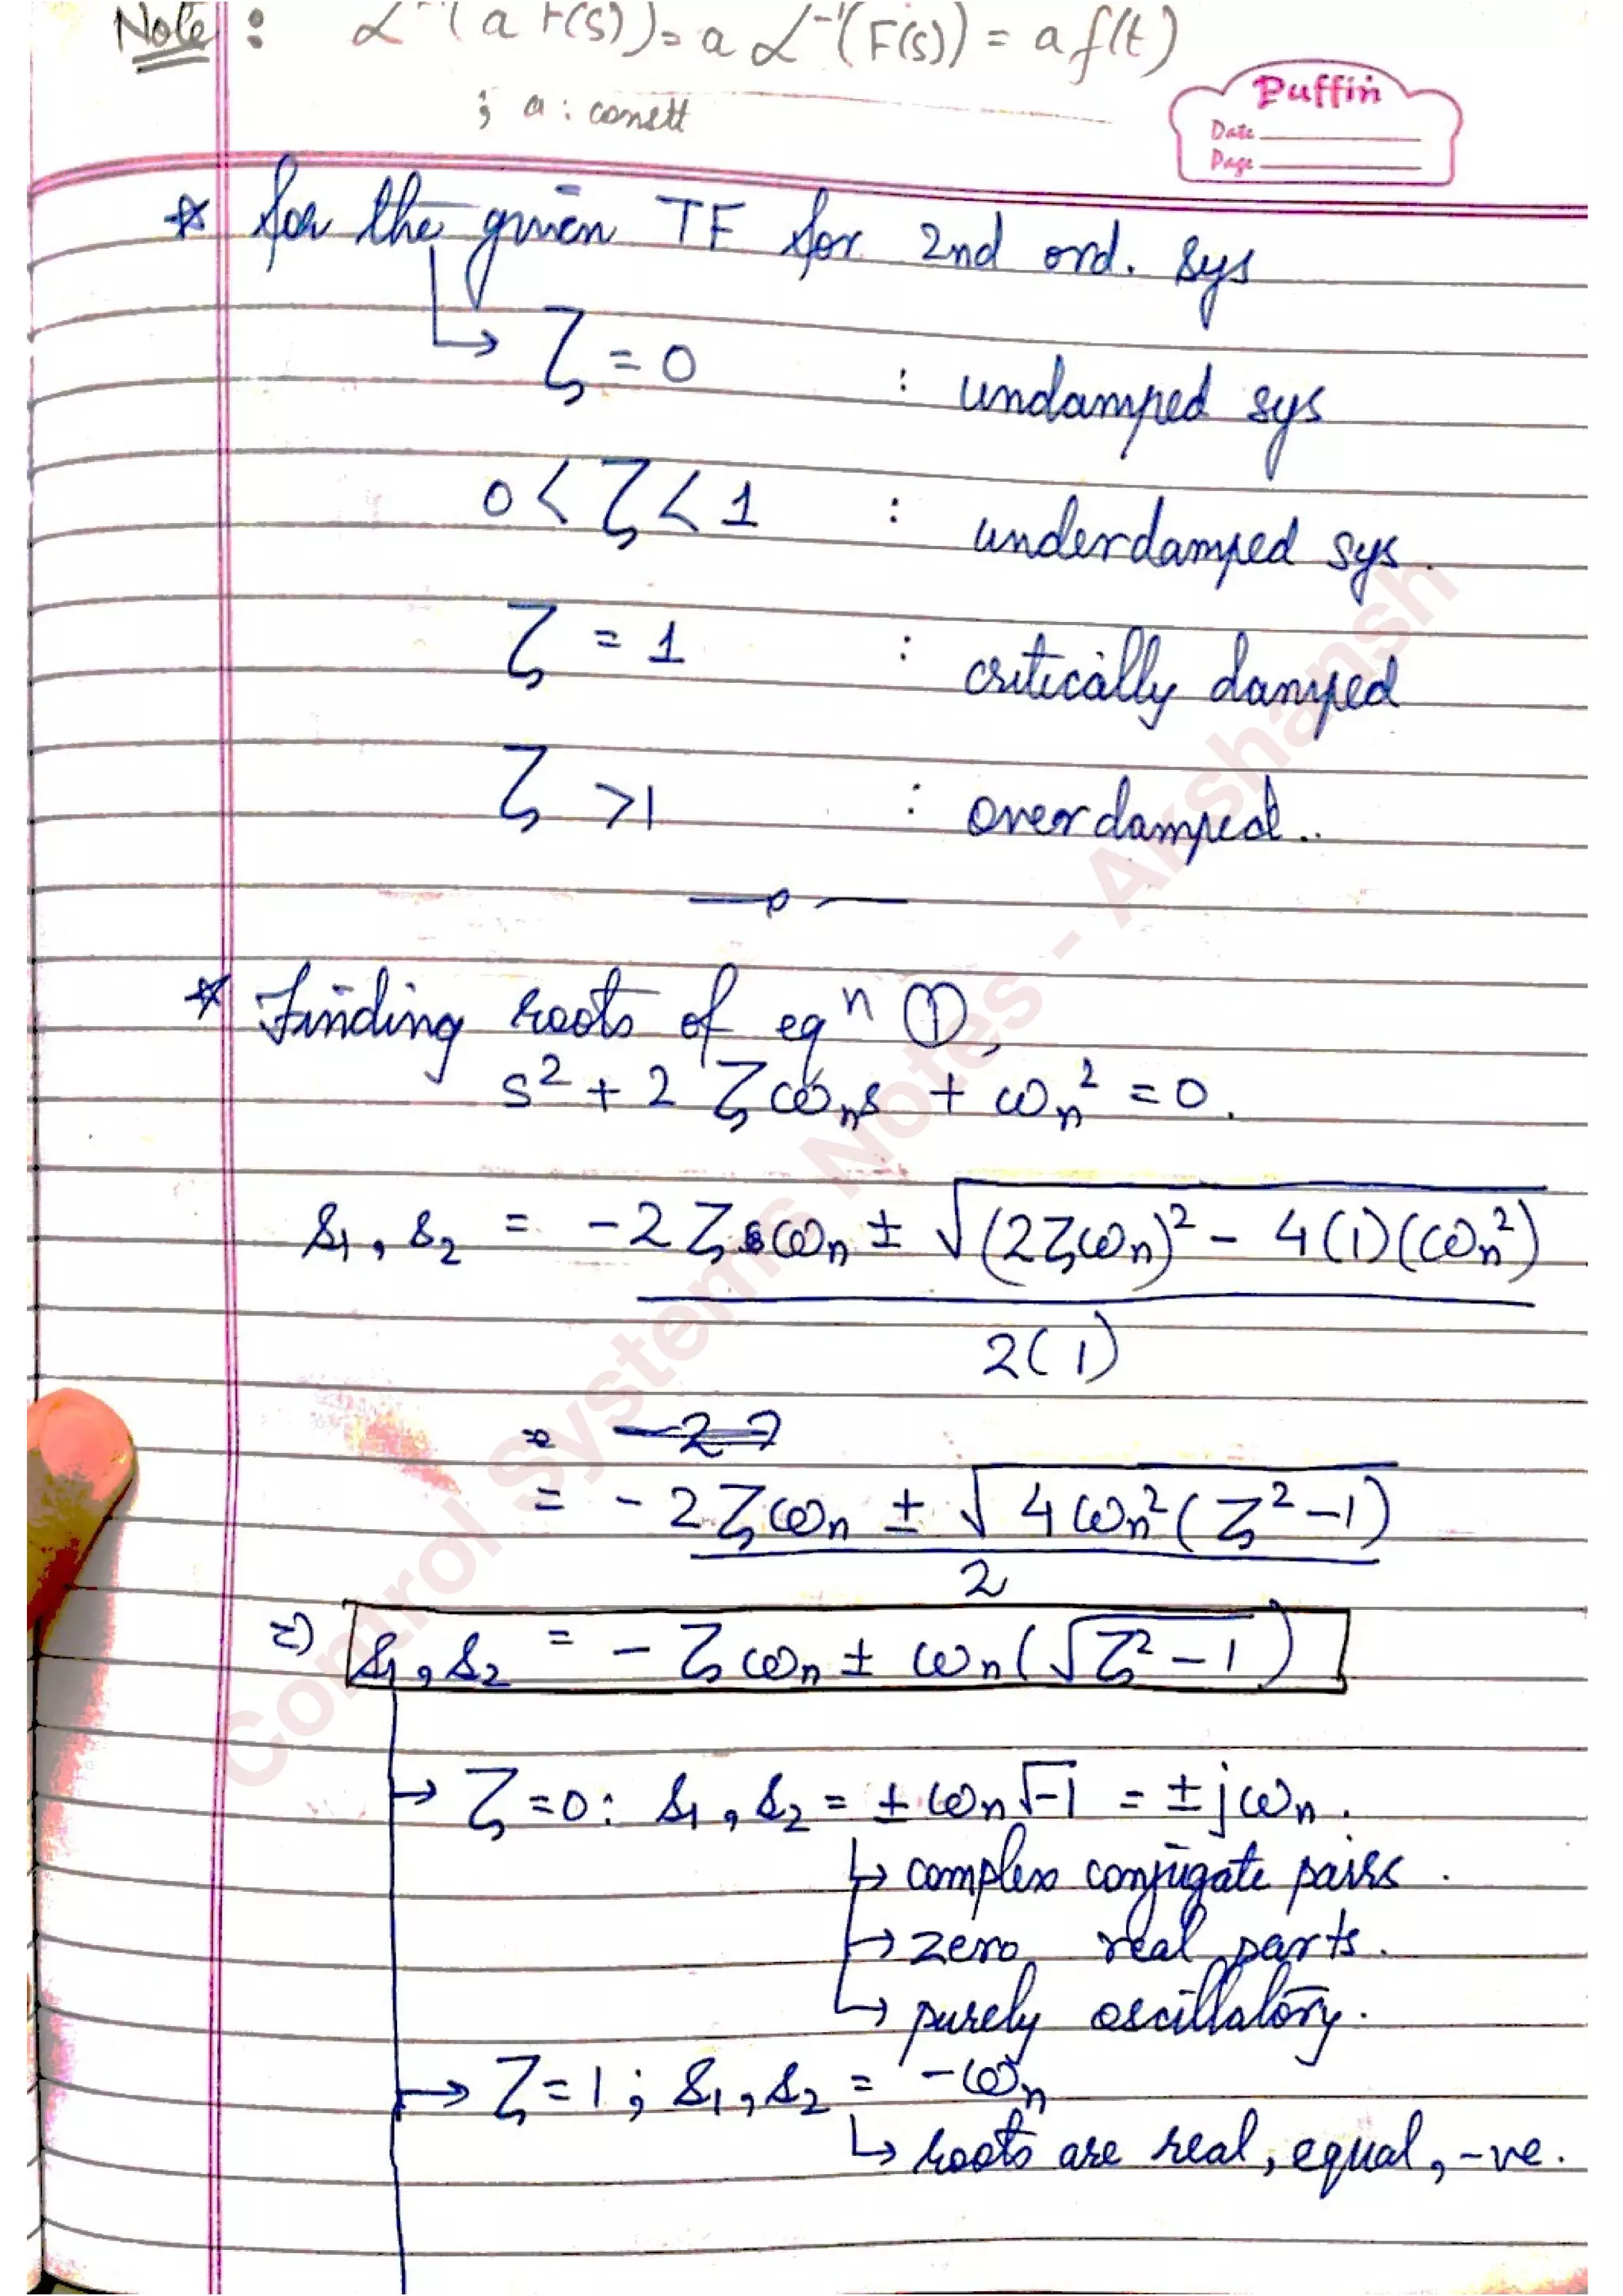 Note : ℒ⁻¹(a F(s)) = a ℒ⁻¹(F(s)) = a f(t)
; a : constt
Puffin
Date
Page
* for the given TF for 2nd ord. sys
↳ ζ = 0 : undamped sys
0 < ζ < 1 : underdamped sys.
ζ = 1 : critically damped
ζ > 1 : overdamped..
* Finding roots of eqⁿ ①,
s² + 2 ζωₙs + ωₙ² = 0.
s₁, s₂ = -2ζωₙ ± √((2ζωₙ)² - 4(1)(ωₙ²))
2(1)
= -2ζωₙ ± √(4ωₙ²(ζ²-1))
2
⇒ s₁, s₂ = - ζωₙ ± ωₙ(√ζ²-1)
→ ζ=0: s₁, s₂ = ± ωₙ√-1 = ± jωₙ.
↳ complex conjugate pairs.
→ zero real parts.
↳ purely oscillatory.
→ ζ=1; s₁, s₂ = -ωₙ
↳ roots are real, equal, -ve.
Control Systems Notes - Akshansh